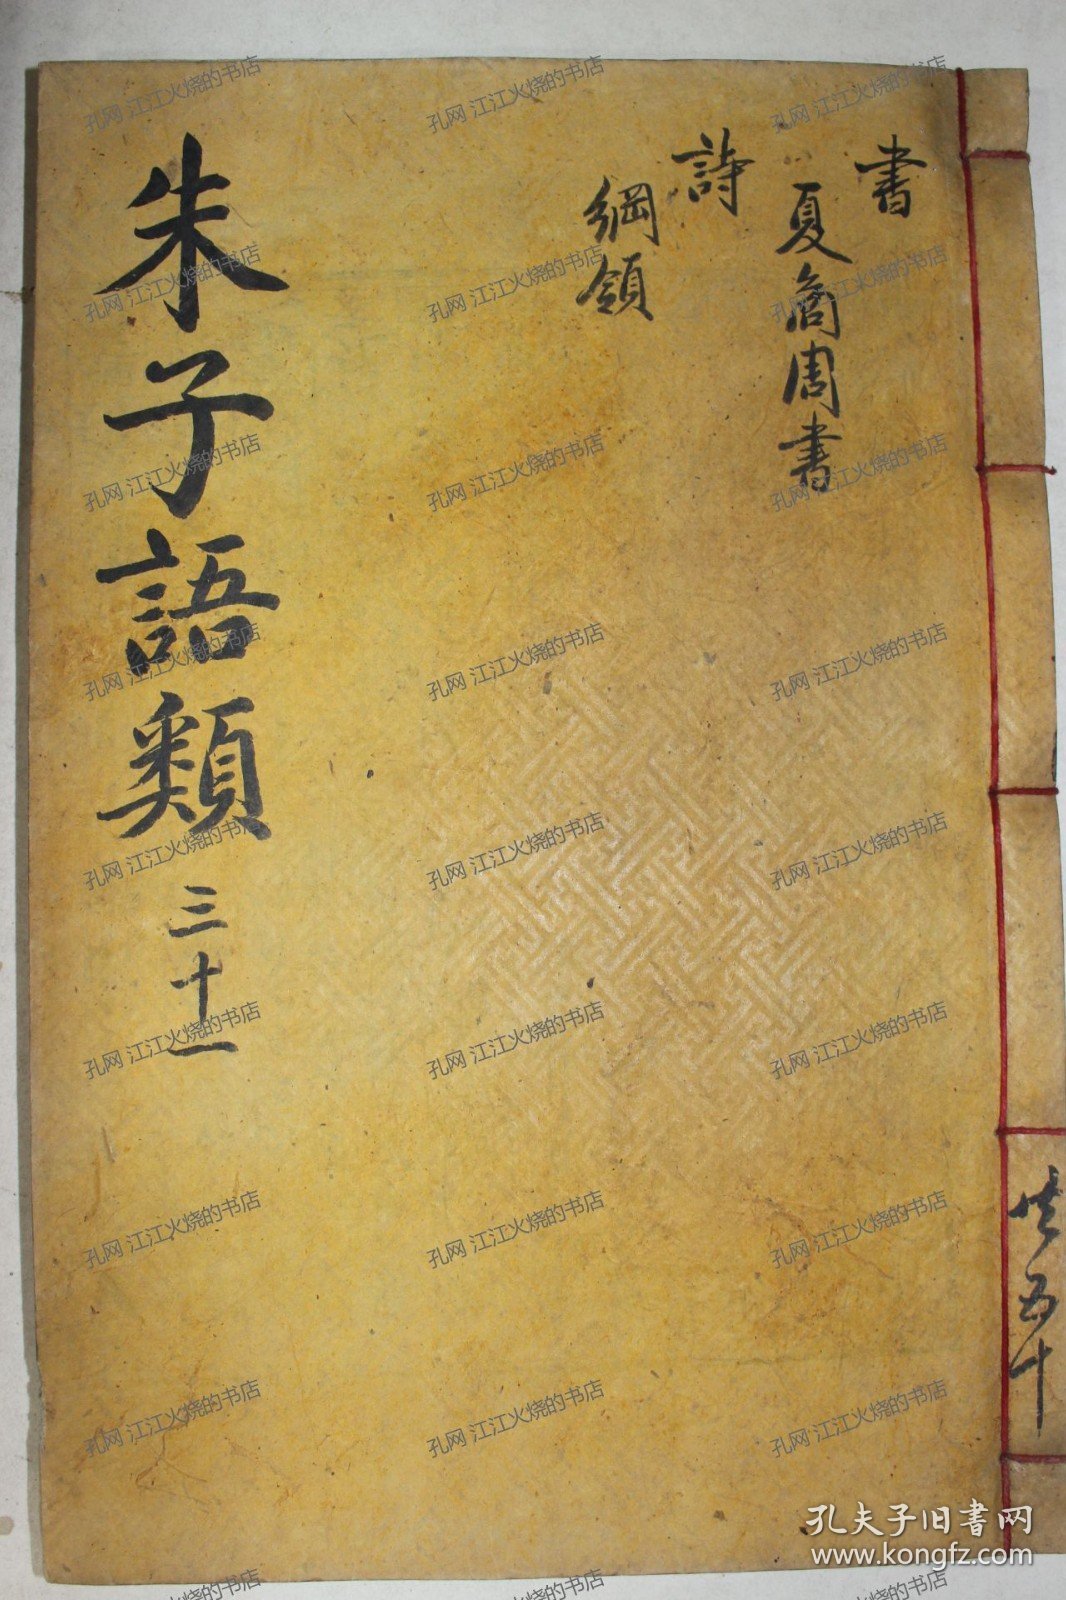 書
夏商周書
詩
綱領
朱子語類 三十一
共五十
孔网 江江火烧的书店
孔夫子旧書网
www.kongfz.com